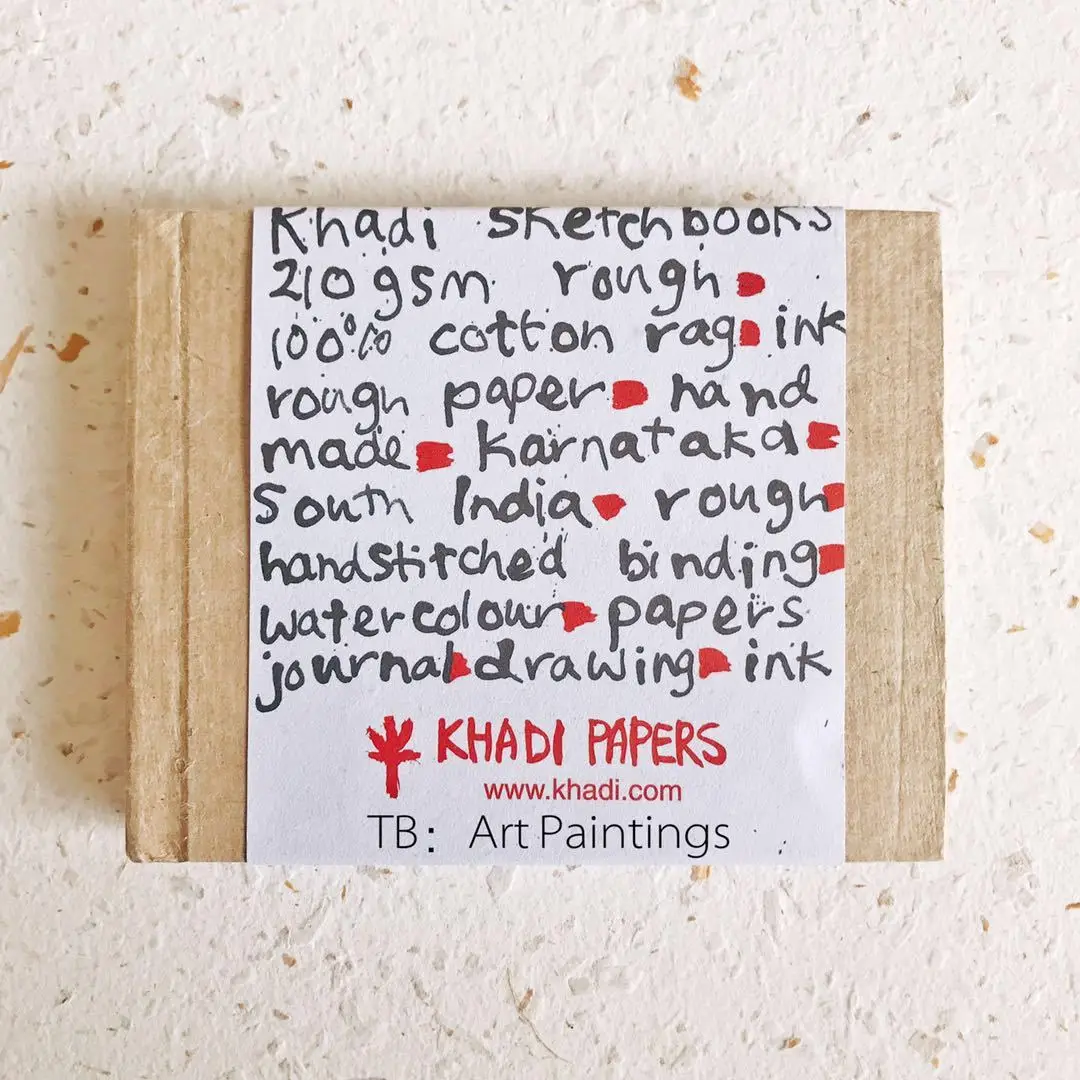 Khadi sketchbooks
210 gsm rough
100% cotton rag ink
rough paper hand
made karnataka
South India rough
handstitched binding
watercolour papers
journal drawing ink
KHADI PAPERS
www.khadi.com
TB: Art Paintings